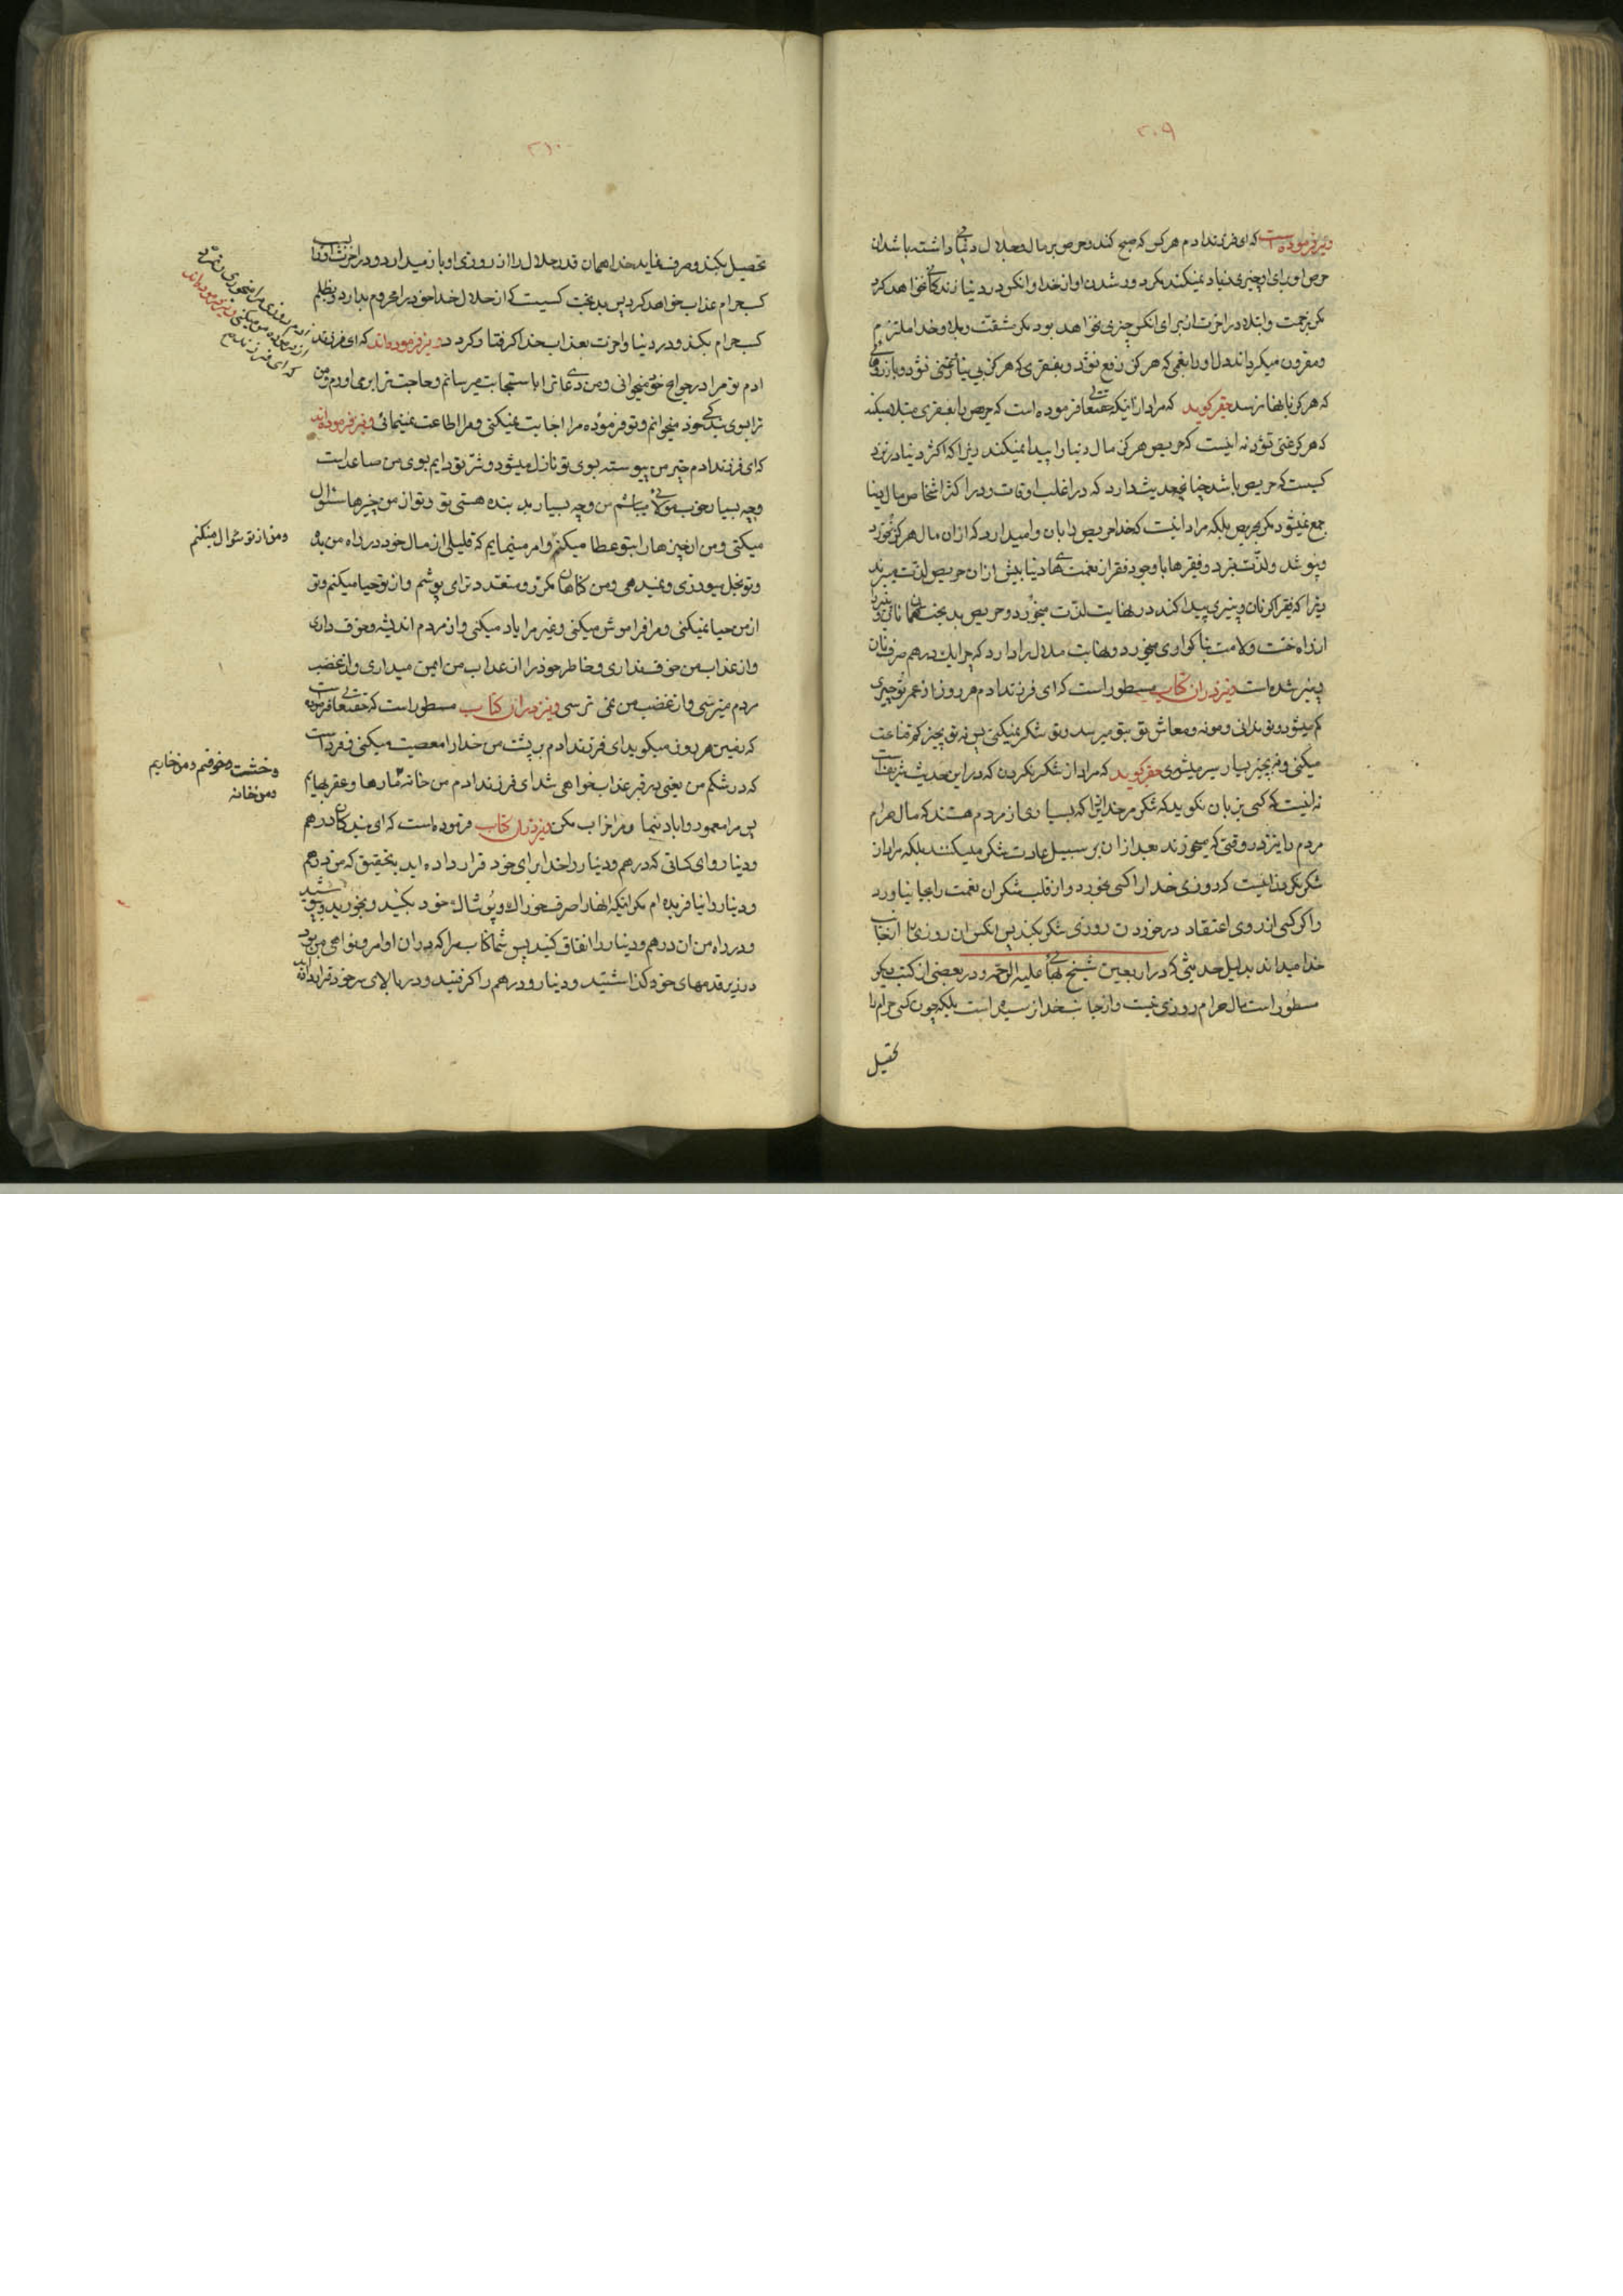 ۲۰۹
ونیز فرموده است که ای فرزند ادم هر کس که صبح کند و حرص بر مال و جلال دنیائی داشته باشد ان
حرص او برای او چیزی زیاد نمیکند مکر دور شدن او از خدا و انکس در دنیا زندکانی نخواهد کرد
مکر بزحمت و ابتلا و در اخرت از برای انکس چیزی نخواهد بود مکر مشقت و بلا و خدا ملتزم
و مقرون میکرداند دل او را بغمی که هرکز رفع نشود و بفقری که هرکز بی نیاز و غنی نشود و بارزوئی
که هرکز بانها نرسد حقیر کوید که مراد از اینکه حقتعالی فرموده است که حریص را بفقری مبتلا میکند
که هرکز غنی نشود نه اینست که حریص هرکز مال دنیا را پیدا نمیکند زیرا که اکثر دنیا در نزد
کسیست که حریص باشد چنانچه حدیث دارد که در اغلب اوقات و در اکثر اشخاص مال دنیا
جمع نمیشود مکر بحریص بلکه مراد اینست که خدا حریص را بان وامیدارد که از ان مال هرکز نخورد
و نپوشد و لذت نبرد و فقیرها با وجود فقر از نعمت های دنیا بیش از ان حریص لذت میبرند
زیرا که فقیر اکر نان و پنیری پیدا کند در نهایت لذت میخورد و حریص بد بخت همان نان و پنیر را
از راه خست و لامت بنا کواری میخورد و نهایت ملال را دارد که چرا یک درهم صرف نان
پنیر شده است ونیز در ان کتاب مسطور است که ای فرزند ادم هر روز از عمر تو چیزی
کم میشود و تو ندانی و مونه و معاش تو بتو میرسد و تو شکر نمیکنی پس نه تو بچیز کم قناعت
میکنی و نه بچیز بسیار سیر میشوی حقیر کوید که مراد از شکر نکردن که در این حدیث شریف است
نه اینست که کسی بزبان نکوید که شکر مر خدایرا که بسیاری از مردم هستند که مال حرام
مردم را نیز در وقتی که میخورند بعد از ان بر سبیل عادت شکر میکنند بلکه مراد از
شکر نکردن اینست که روزی خدا را کسی بخورد و از قلب شکر ان نعمت را بجا نیاورد
و اکر کسی از روی اعتقاد در خوردن روزی شکر بکند پس انکس ان روزی را از جانب
خدا میداند بدلیل حدیثی که در اربعین شیخ بهائی علیه الرحمه و در بعضی از کتب دیکر
مسطور است مال حرام روزی نیست و از جانب خدا نرسیده است بلکه چون کسی حرام را
تحصیل
۲۱۰
تحصیل بکند و صرف نماید خدا همان قدر حلال را از روزی او باز میدارد و در اخرت او را بسبب
کسب حرام عذاب خواهد کرد پس بد بخت کسیست که از حلال خدا خود را محروم بدارد و بظلم
کسب حرام بکند و در دنیا و اخرت بعذاب خدا کرفتار کردد ونیز فرموده‌اند که ای فرزند
ادم تو مرا در حوایج خود میخوانی و من دعای ترا باستجابت میرسانم و حاجت ترا برمی اورم و من
ترا بسوی بندکی خود میخوانم و تو فرموده مرا اجابت نمیکنی و مرا اطاعت نمینمائی ونیز فرموده‌اند
که ای فرزند ادم خیر من پیوسته بسوی تو نازل میشود و شر تو دایم بسوی من صاعد است
و چه بسیار خوب مولائی میباشم من و چه بسیار بد بنده هستی تو و تو از من چیزها سئوال
میکنی و من ان چیزها را بتو عطا میکنم و امر مینمایم که قلیلی از مال خود در راه من بده
و تو بخل میورزی و نمیدهی و من کناهان مکرر و متعدد ترا می پوشم و از تو حیا میکنم و تو
از من حیا نمیکنی و مرا فراموش میکنی و غیر مرا یاد میکنی و از مردم اندیشه و خوف داری
و از عذاب من خوف نداری و خاطر خود را از عذاب من ایمن میداری و از غضب
مردم میترسی و از غضب من نمی ترسی ونیز در ان کتاب مسطور است که حقتعالی فرموده است
که زمین هر روز میکوید ای فرزند ادم بر پشت من خدا را معصیت میکنی و فردا است
که در شکم من یعنی در قبر عذاب خواهی شد ای فرزند ادم من خانه مارها و عقربهایم
پس مرا معمور و اباد بنما و مرا خراب مکن ونیز در ان کتاب فرموده است که ای بندکان درهم
و دینار و ای کسانی که درهم و دینار را خدا برای خود قرار داده اید بتحقیق که من درهم
و دینار را نیافریده ام مکر اینکه انها را صرف خوراک و پوشاک خود بکنید و بخورید و بپوشید
و در راه من ان درهم و دینار را انفاق کنید پس شما کتاب مرا که در ان اوامر و نواهی من بود
در زیر قدمهای خود کذاشتید و دینار و درهم را کرفتید و در بالای سر خود قرار داده اید
ومن از تو سئوال میکنم
و خشت
و من خانه